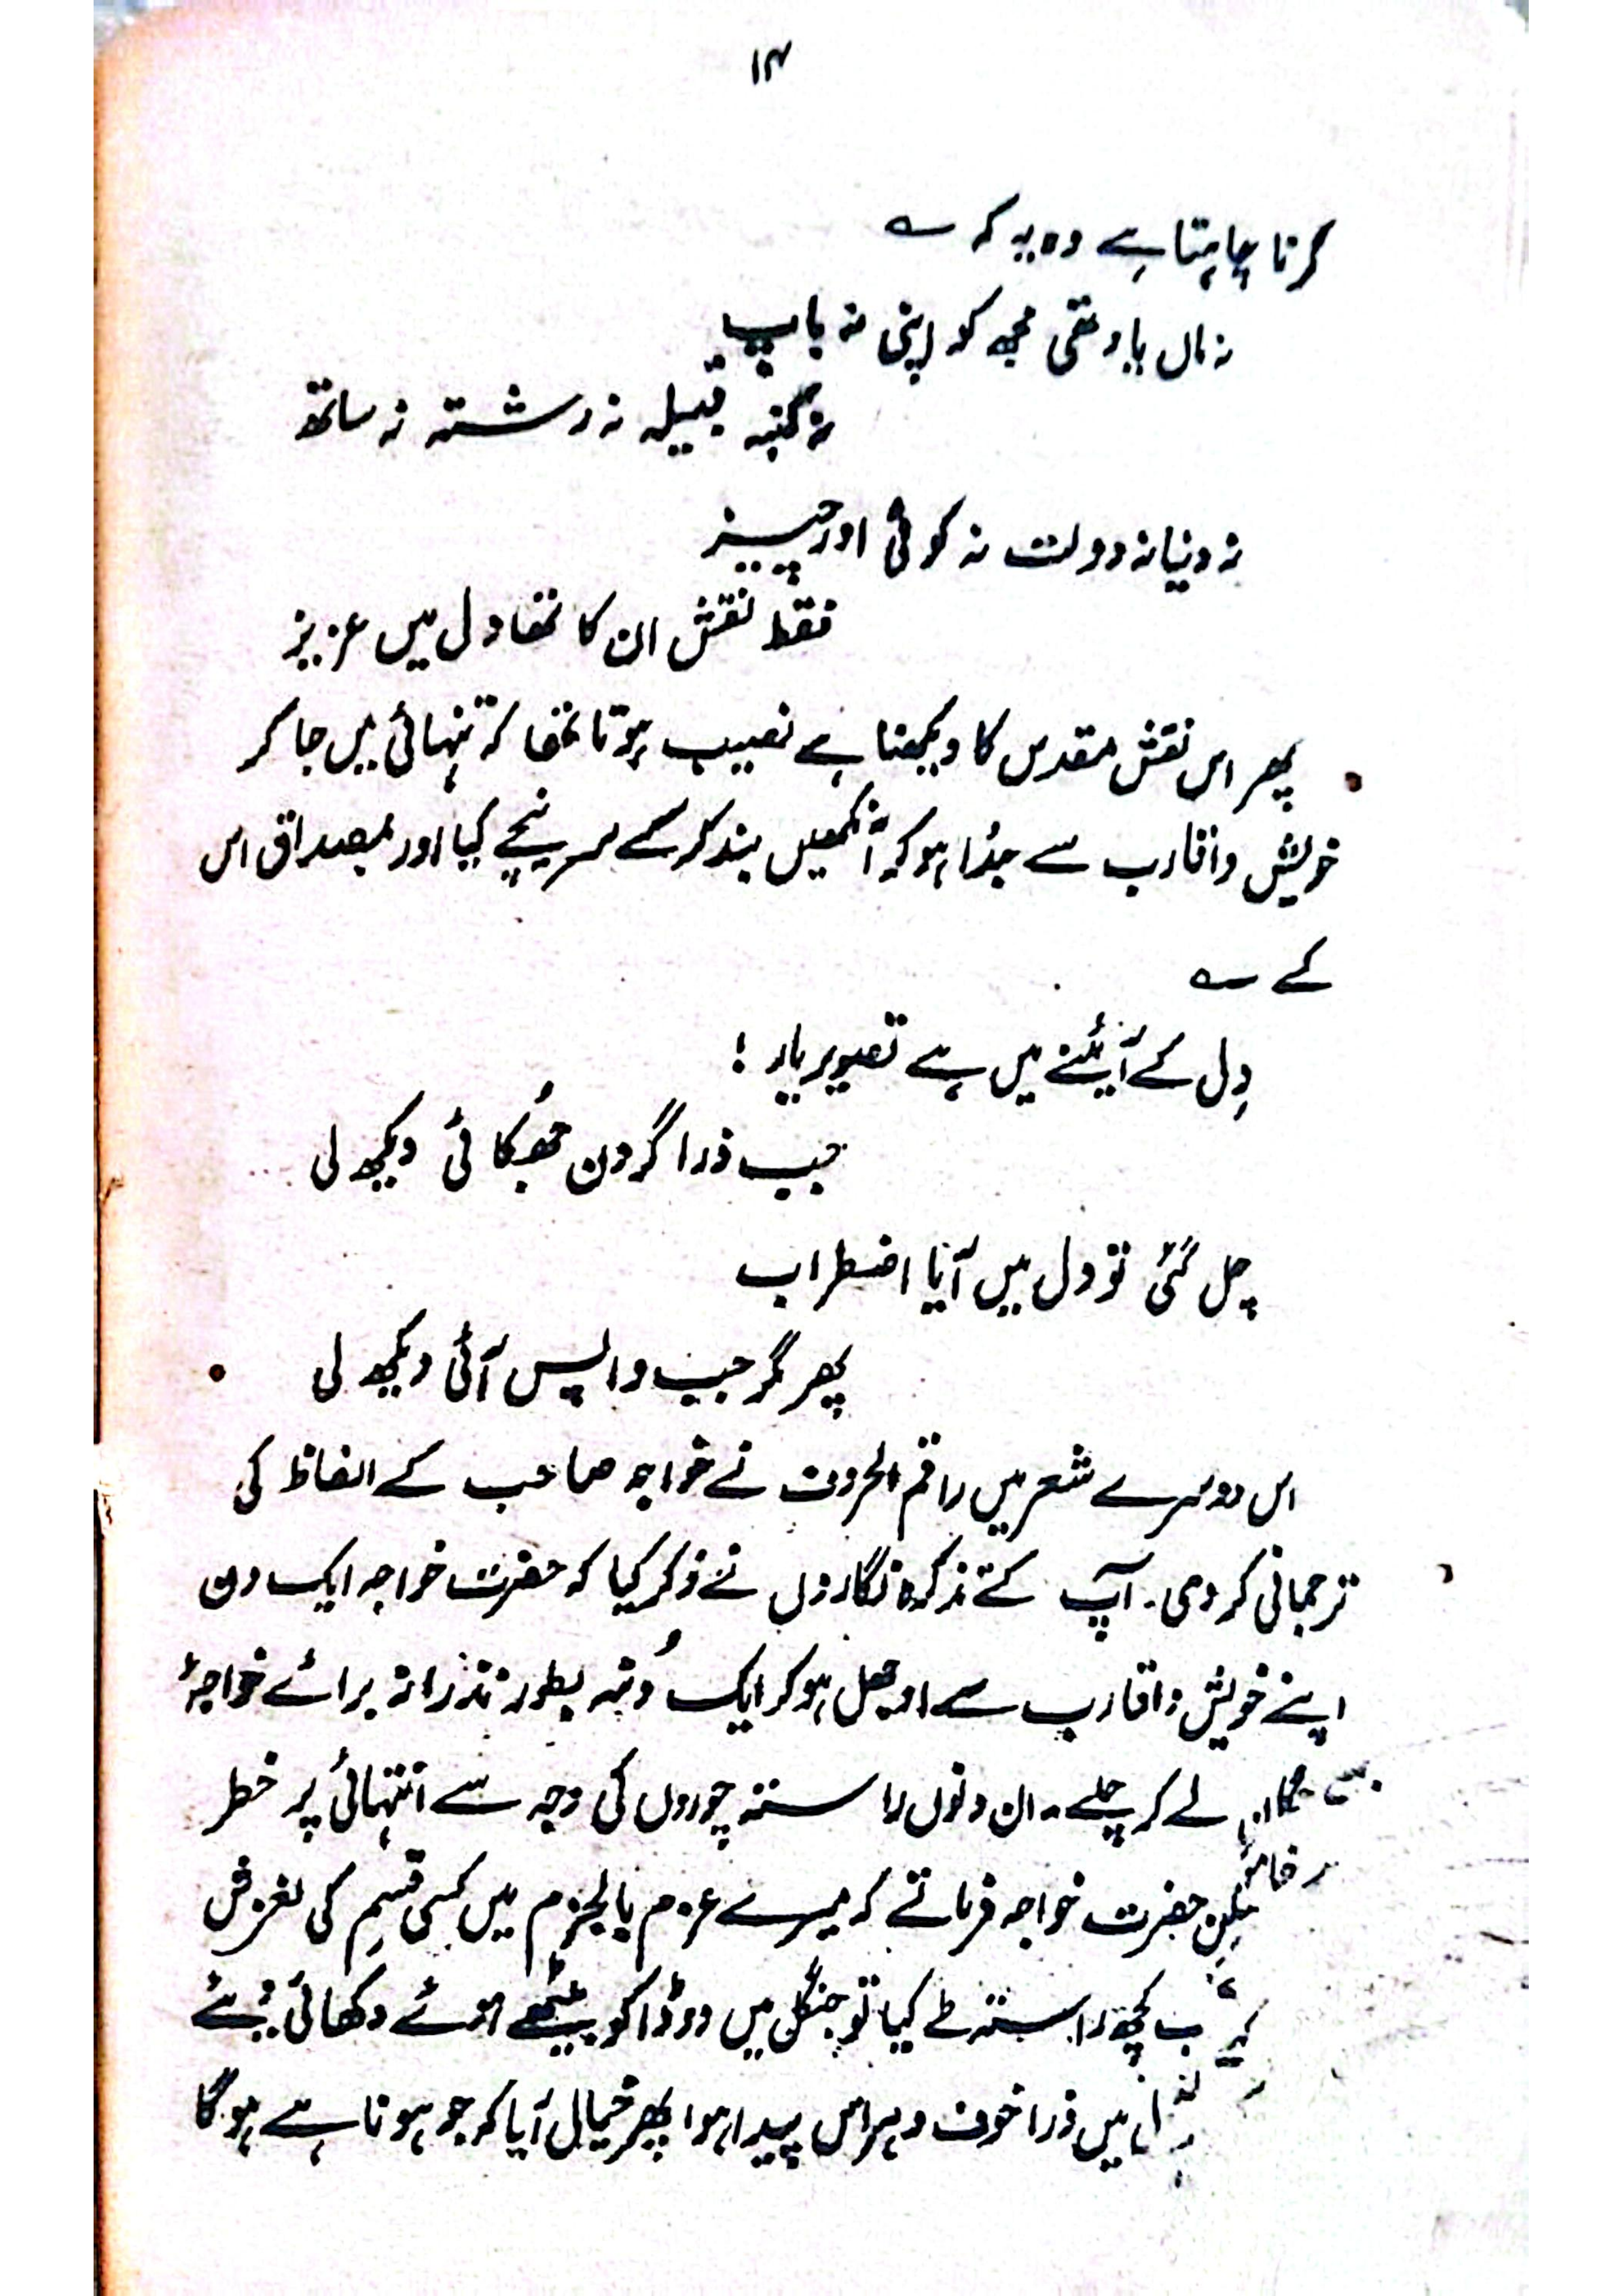 ۱۴
کرنا چاہتا ہے وہ یہ کہ ؎
نہ ماں یاد تھی مجھ کو اپنی نہ باپ
نہ کنبہ قبیلہ نہ رشتہ نہ ساتھ
نہ دنیا نہ دولت نہ کوئی اور چیز
فقط نقش ان کا تھا دل میں عزیز
پھر اس نقش مقدس کا دیکھنا ہے نصیب ہوتا تھا کہ تنہائی میں جا کر
خویش و اقارب سے جُدا ہو کر آنکھیں بند کر کے سر نیچے کیا اور بمصداق اس
کے ؎
دِل کے آئینے میں ہے تصویر یار !
جب ذرا گردن جُھکائی دیکھ لی
چل گئی تو دل میں آیا اضطراب
پھر مگر جب واپس آئی دیکھ لی
اس دوسرے شعر میں راقم الحروف نے خواجہ صاحب کے الفاظ کی
ترجمانی کر دی۔ آپ کے تذکرہ نگاروں نے ذکر کیا کہ حضرت خواجہ ایک دن
اپنے خویش و اقارب سے اوجھل ہو کر ایک دُنبہ بطور نذرانہ برائے خواجۂ
لے کر چلے۔ ان دنوں راستہ چوروں کی وجہ سے انتہائی پر خطر
لیکن حضرت خواجہ فرماتے کہ میرے عزم بالجزم میں کسی قسم کی لغزش
کچھ راستہ طے کیا تو جنگل میں دو ڈاکو بیٹھے ہوئے دکھائی دیئے
میں ذرا خوف و ہراس پیدا ہوا پھر خیال آیا کہ جو ہونا ہے ہو گا